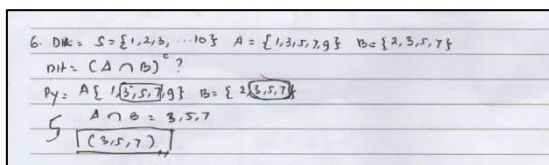 6. Dik = S = {1, 2, 3, ... 10} A = {1, 3, 5, 7, 9} B = {2, 3, 5, 7}
Dit = (A ∩ B)ᶜ ?
Py = A{1, 3, 5, 7, 9} B = {2, 3, 5, 7}
A ∩ B = 3, 5, 7
(3, 5, 7)